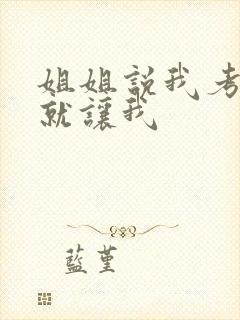 姐姐説我考
就讓我
藍堇